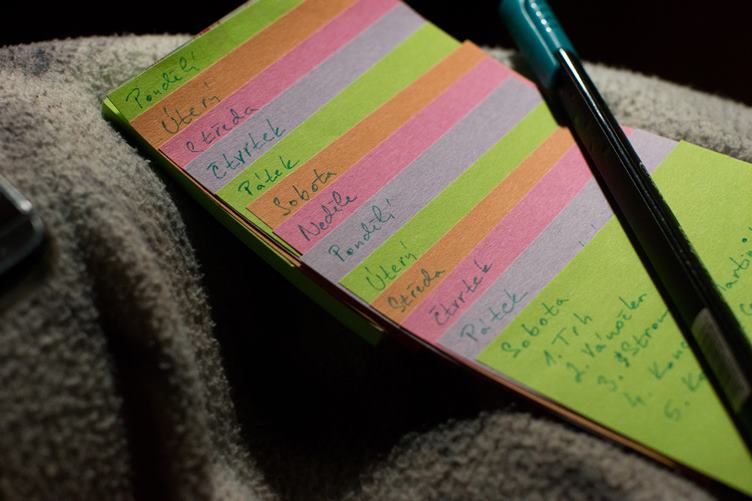 Pondělí
Úterý
Středa
Čtvrtek
Pátek
Sobota
Neděle
Pondělí
Úterý
Středa
Čtvrtek
Pátek
Sobota
1. Trh
2.
3.
4.
5.